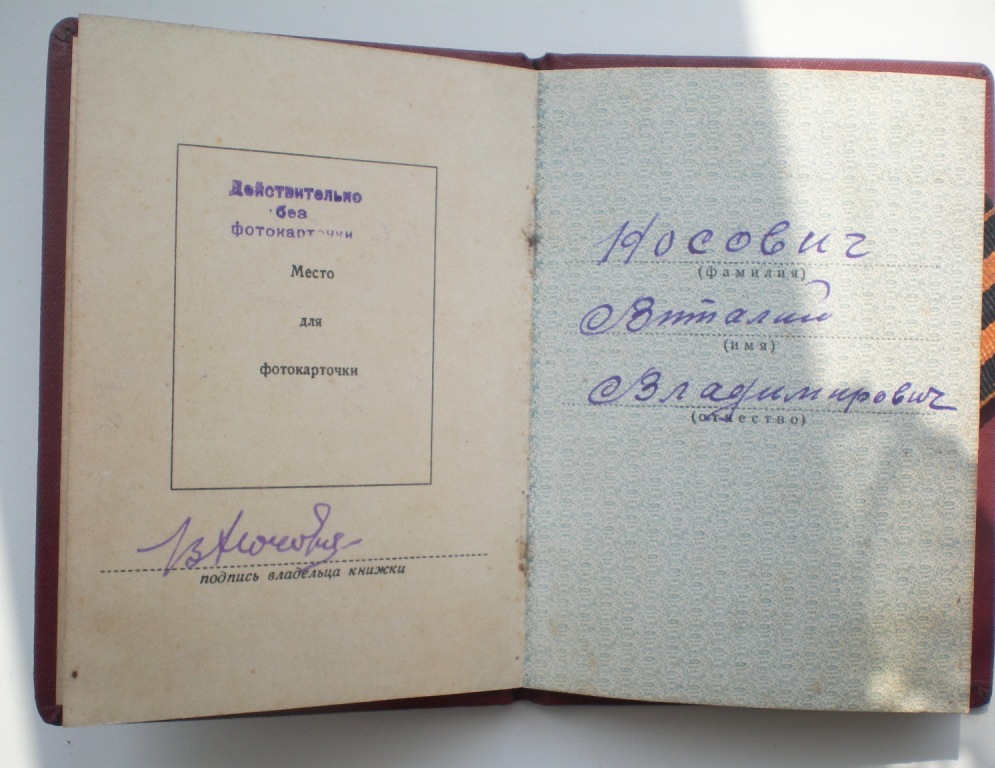 Действительно
без
фотокарточки
Место
для
фотокарточки
подпись владельца книжки
Носович
(фамилия)
Виталий
(имя)
Владимирович
(отчество)